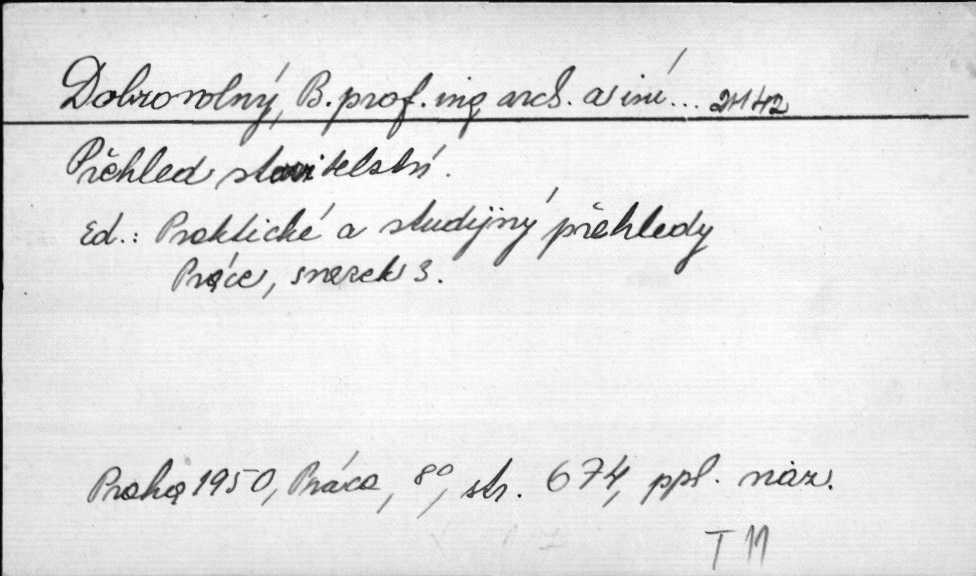 Dobrovolný, B. prof. ing. arch. a iní... 2H42
Přehled stavitelství.
Ed.: Praktické a studijný přehledy
Práce, svazek 3.
Praha 1950, Práca, 8°, str. 674, ppl. náz.
T 11